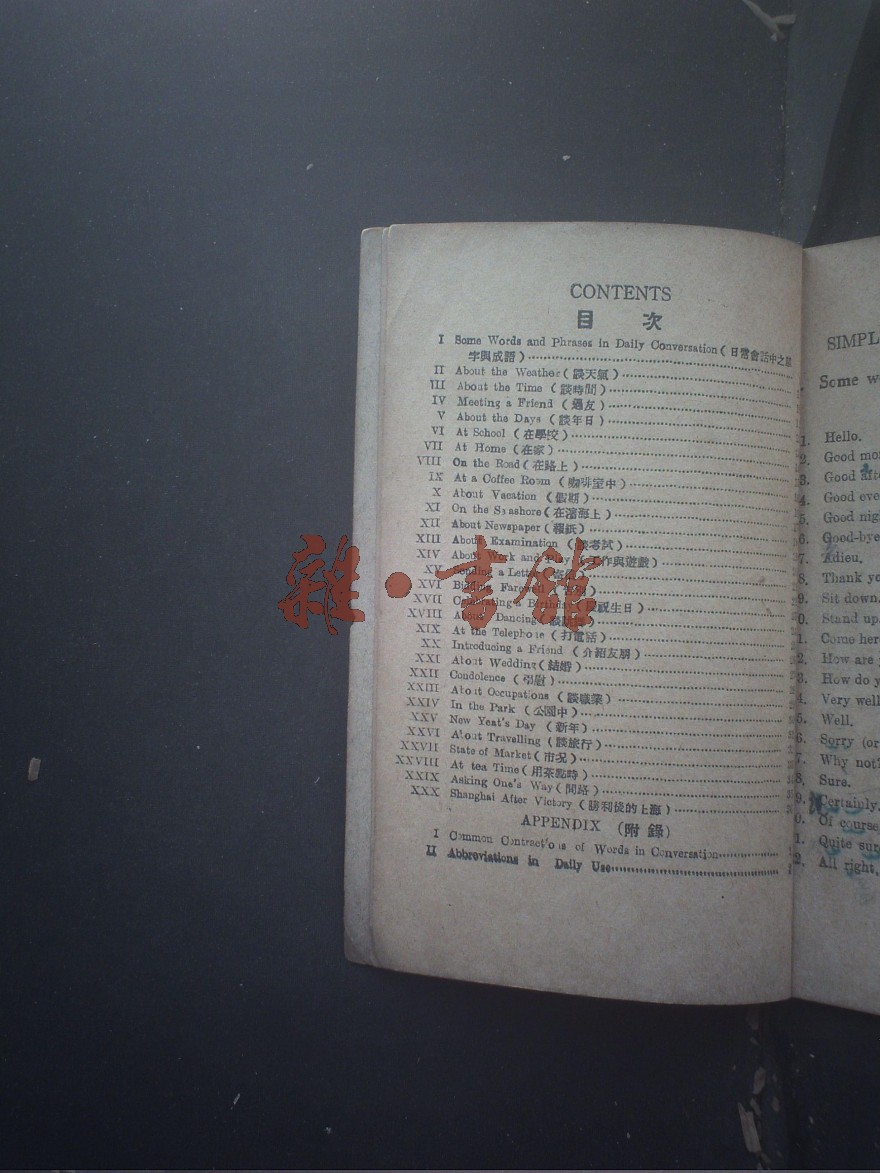 CONTENTS
目 次
I Some Words and Phrases in Daily Conversation (日常會話中之單
字與成語)
II About the Weather (談天氣)
III About the Time (談時間)
IV Meeting a Friend (遇友)
V About the Days (談年日)
VI At School (在學校)
VII At Home (在家)
VIII On the Road (在路上)
IX At a Coffee Room (咖啡室中)
X About Vacation (假期)
XI On the Seashore (在濱海上)
XII About Newspaper (報紙)
XIII About Examination (談考試)
XIV About Work and Play (工作與遊戲)
XV Sending a Letter
XVI Bidding Farewell
XVII Celebrating Birthday (慶祝生日)
XVIII About Dancing
XIX At the Telephone (打電話)
XX Introducing a Friend (介紹友朋)
XXI About Wedding (結婚)
XXII Condolence (引慰)
XXIII About Occupations (談職業)
XXIV In the Park (公園中)
XXV New Year's Day (新年)
XXVI About Travelling (談旅行)
XXVII State of Market (市况)
XXVIII At tea Time (用茶點時)
XXIX Asking One's Way (問路)
XXX Shanghai After Victory (勝利後的上海)
APPENDIX (附錄)
I Common Contractions of Words in Conversation
II Abbreviations in Daily Use
雜·書館
SIMPL
Some w
1. Hello.
2. Good mo
3. Good afte
4. Good eve
5. Good nig
6. Good-bye
7. Adieu.
8. Thank yo
9. Sit down.
0. Stand up.
1. Come here
2. How are
3. How do y
4. Very well
5. Well.
6. Sorry (or
7. Why not?
8. Sure.
9. Certainly.
0. Of course
1. Quite sure
2. All right.